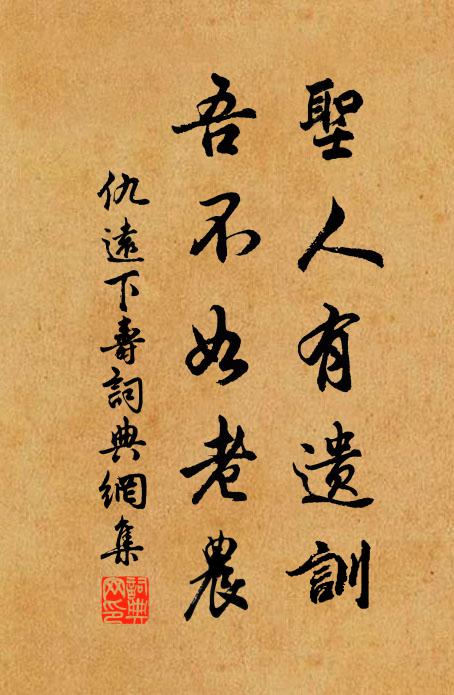 聖人有遺訓
吾不如老農
仇遠下壽詞典網集
詞典網印